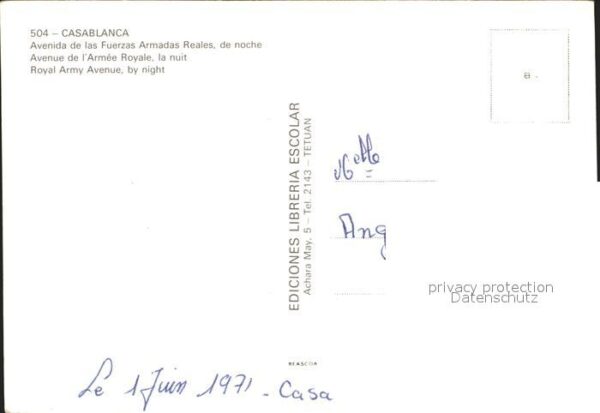 504 – CASABLANCA
Avenida de las Fuerzas Armadas Reales, de noche
Avenue de l'Armée Royale, la nuit
Royal Army Avenue, by night
EDICIONES LIBRERIA ESCOLAR
Achara May, 5 – Tel. 2143 – TETUAN
Melle
Ang
privacy protection
Datenschutz
Le 1 Juin 1971 - Casa